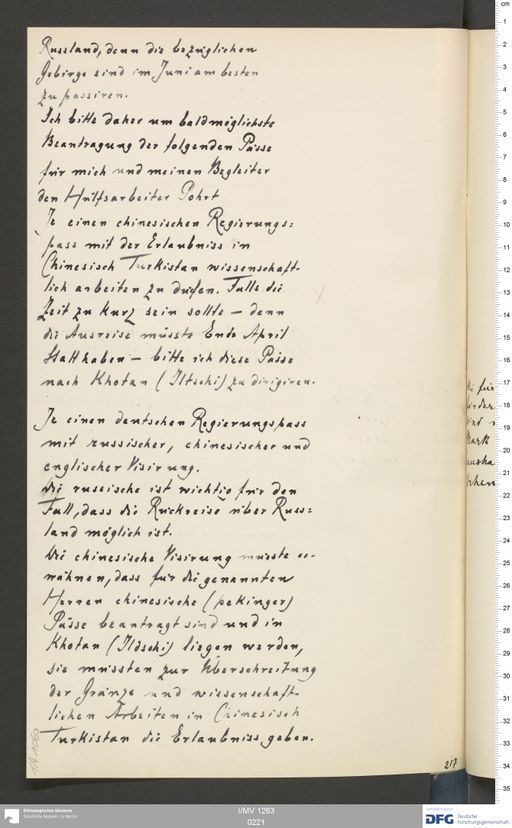 Russland, denn die bezüglichen
Gebirge sind im Juni am besten
zu passiren.
Ich bitte daher um baldmöglichste
Beantragung der folgenden Pässe
für mich und meinen Begleiter
den Hülfsarbeiter Pohrt
Je einen chinesischen Regierungs=
pass mit der Erlaubniss in
Chinesisch Turkistan wissenschaft-
lich arbeiten zu dürfen. Falls die
Zeit zu kurz sein sollte – denn
die Ausreise müsste Ende April
statthaben – bitte ich diese Pässe
nach Khotan (Iltschi) zu dirigiren.
Je einen deutschen Regierungspass
mit russischer, chinesischer und
englischer Visirung.
Die russische ist wichtig für den
Fall, dass die Rückreise über Russ=
land möglich ist.
Die chinesische Visirung müsste er-
wähnen, dass für die genannten
Herren chinesische (pekinger)
Pässe beantragt sind und in
Khotan (Ildschi) liegen werden,
sie müssten zur Überschreitung
der Gränze und wissenschaft-
lichen Arbeiten in Chinesisch
Turkistan die Erlaubniss geben.
217
Ethnologisches Museum
Staatliche Museen zu Berlin
I/MV 1263
0221
DFG Deutsche
Forschungsgemeinschaft
cm
1
2
3
4
5
6
7
8
9
10
11
12
13
14
15
16
17
18
19
20
21
22
23
24
25
26
27
28
29
30
31
32
33
34
35